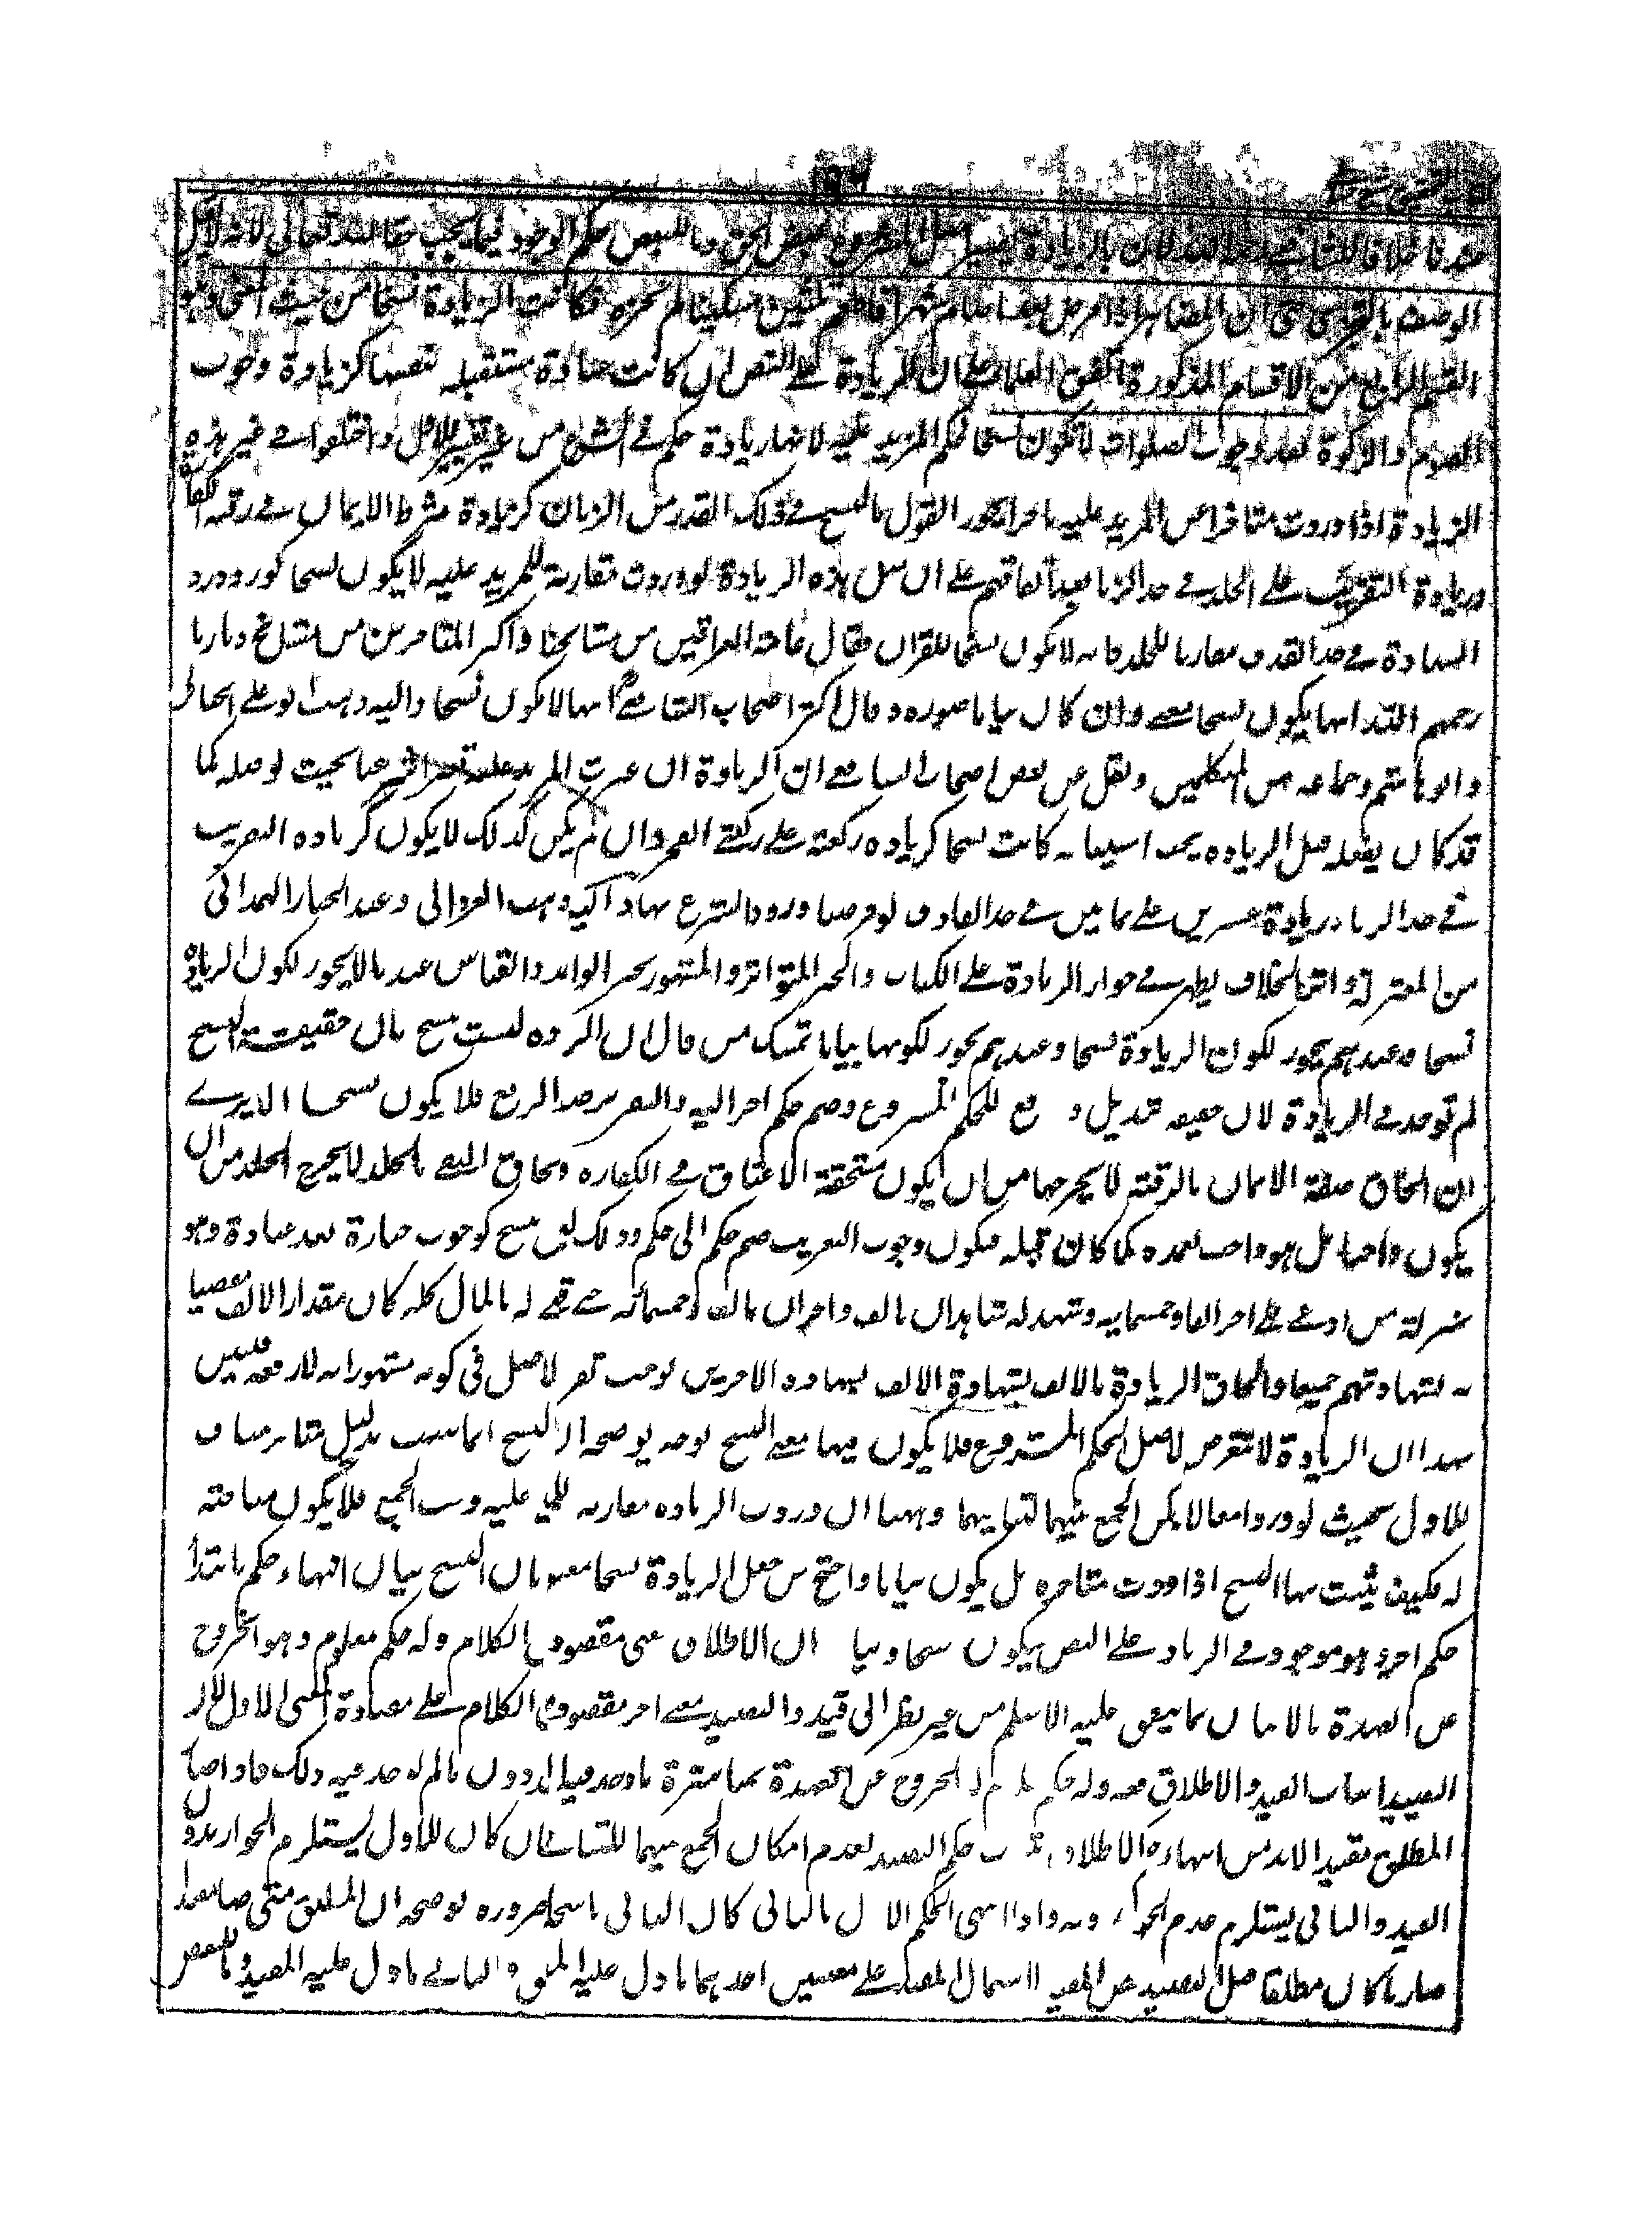 عندنا خلافا للشافعي رحمه الله لان بالزيادة يصير اصل المشروع بعض الحق وما للبعض حكم الوجود فيما يجب حقا لله تعالى لانه لا يقبل
الوصف بالتجزي حتى ان المظاهر اذا مرض بعد ما صام شهرا فاطعم ثلثين مسكينا لم يجزه فكانت الزيادة نسخا من حيث المعنى وهو
القسم الرابع من الاقسام المذكورة اتفق العلماء على ان الزيادة على النص ان كانت عبادة مستقبلة بنفسها كزيادة وجوب
الصوم والزكوة بعد وجوب الصلوات لا يكون نسخا لحكم المزيد عليه لانها زيادة حكم في الشرع من غير تغيير للاصل واختلفوا في غير هذه
الزيادة اذا وردت متاخرا عن المزيد عليه تاخرا يجوز القول بالنسخ في ذلك القدر من الزمان كزيادة شرط الايمان في رقبة الكفارة
وزيادة التغريب على الجلد في حد الزنا بعد اتفاقهم على ان مثل هذه الزيادة لو وردت مقارنة للمزيد عليه لا يكون نسخا كورود رد
الشهادة في حد القذف مقارنا للجلد فانه لا يكون نسخا للقران فقال عامة العراقيين من مشايخنا واكثر المتاخرين من مشايخ ديارنا
رحمهم الله انها يكون نسخا معنى وان كان بيانا صورة وقال اكثر اصحاب الشافعي انها لا يكون نسخا واليه ذهب ابو علي الجبائي
وابو هاشم وجماعة من المتكلمين ونقل عن بعض اصحاب الشافعي ان الزيادة ان غيرت المزيد عليه تغييرا شرعيا بحيث لو فعله كما
قد كان يفعله قبل الزيادة يجب استينافه كانت نسخا كزيادة ركعة على ركعتي الفجر وان لم يكن كذلك لا يكون كزيادة التغريب
في حد الزنا وزيادة عشرين على ثمانين في حد القاذف لو فرضنا ورود الشرع بها واليه ذهب الغزالي وعبد الجبار الهمداني
من المعتزلة وانما الخلاف يظهر في جواز الزيادة على الكتاب والخبر المتواتر والمشهور بخبر الواحد والقياس عندنا لا يجوز لكون الزيادة
نسخا وعندهم يجوز لكون الزيادة نسخا وعندهم يجوز لكونها بيانا تمسك من قال ان الزيادة ليست بنسخ بان حقيقة النسخ
لم توجد في الزيادة لان حقيقته تبديل ورفع للحكم المشروع وضم حكم اخر اليه والتقرير ضد الرفع فلا يكون نسخا الا يرى
ان الحاق صفة الايمان بالرقبة لا يخرجها من ان يكون مستحقة الاعتاق في الكفارة والحاق النفي بالجلد لا يخرج الجلد من ان
يكون واجبا بل هو واجب بعده كما كان قبله فيكون وجوب التغريب ضم حكم الى حكم وذلك ليس بنسخ كوجوب عبادة بعد عبادة وهو
بمنزلة من ادعى على اخر الفا وخمسمائة وشهد له شاهدان بالف واخران بالف وخمسمائة حتى قضي له بالمال كله كان مقدار الالف مقضيا
به بشهادتهم جميعا والحاق الزيادة بالالف بشهادة الالف بشهادة الاخرين يوجب تقرر الاصل في كونه مشهودا به لا رفعه فتبين
بهذا ان الزيادة لا تتعرض لاصل الحكم المشروع فلا يكون فيها معنى النسخ بوجه يوضحه ان النسخ انما يثبت بدليل متاخر مناف
للاول بحيث لو وردا معا لا يمكن الجمع بينهما لتنافيهما وههنا ان وردت الزيادة مقارنة للمزيد عليه وجب الجمع فلا يكون منافية
له فكيف يثبت بها النسخ اذا وردت متاخرة بل يكون بيانا واحتج من جعل الزيادة نسخا معنى بان النسخ بيان انتهاء حكم بابتداء
حكم اخر وهو موجود في الزيادة على النص فيكون نسخا وبيانه ان الاطلاق معنى مقصود بالكلام وله حكم معلوم وهو الخروج
عن العهدة بالاتيان بما ينطلق عليه الاسم من غير نظر الى قيد والتقييد معنى اخر مقصود بالكلام على مضادة المعنى الاول لان
التقييد اثبات القيد والاطلاق رفعه وله حكم معلوم وهو الخروج عن العهدة بمباشرة ما وجد فيه القيد دون ما لم يوجد فيه ذلك فاذا صار
المطلق مقيدا لا بد من انتهاء حكم الاطلاق بثبوت حكم التقييد لعدم امكان الجمع بينهما للتنافي فان كان الاول يستلزم الجواز بدون
القيد والثاني يستلزم عدم الجواز بدونه واذا انتهى الحكم الاول بالثاني كان الثاني ناسخا ضرورة يوضحه ان المطلق متى صار مقيدا
صار ما كان مطلقا قبل التقييد بعض المقيد لاشتمال المقيد على معنيين احدهما ما دل عليه المطلق والثاني ما دل عليه المقيد وما للبعض